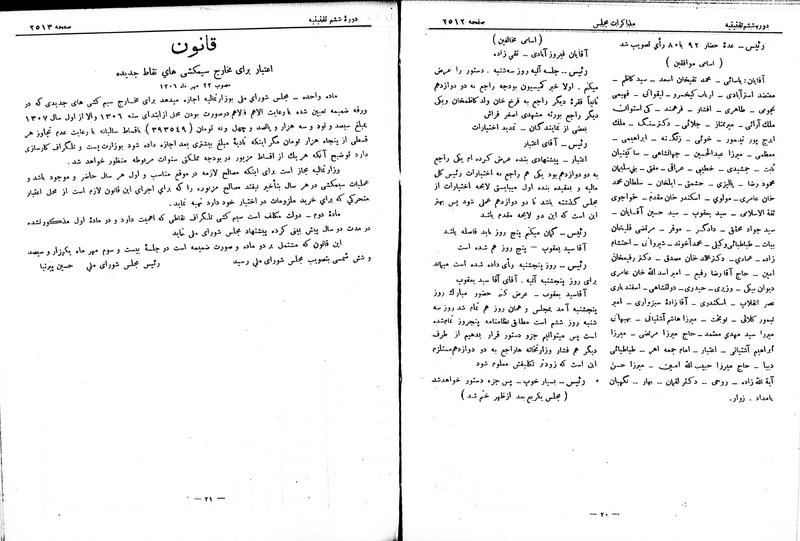 دوره ششم تقنینیه
مذاکرات مجلس
صفحه ۲۵۱۲
رئیس ــ عدۀ حضار ۹۲ با ۸۰ رأی تصویب شد
( اسامی موافقین )
آقایان : یاسائی ــ محمد تقیخان اسعد ــ سید کاظم ــ
معتضد استرآبادی ــ ارباب کیخسرو ــ لیقوانی ــ فهیمی
نجومی ــ طاهری ــ افشار ــ فرهمند ــ کی استوان
ملک آرائی ــ میرممتاز ــ جلائی ــ دکتر سنگ ــ ملک
ایرج پور تیمور ــ خوئی ــ زنگنه ــ ابراهیمی ــ
معظمی ــ میرزا عبدالحسین ــ جهانشاهی ــ ساکینیان
ثابت ــ جمشیدی ــ خطیبی ــ عراقی ــ مفتی ــ بنی سلیمان
محمود رضا ــ پالیزی ــ حشمتی ــ ایلخان ــ سلطان محمد
خان عامری ــ مولوی ــ اسکندر خان مقدم ــ خواجوی
ثقة الاسلامی ــ سید یعقوب ــ سید حسین آقایان ــ
سید جواد محقق ــ دادگر ــ موقر ــ مرتضی قلیخان
بیات ــ طباطبائی وکیلی ــ محمد آخوند ــ شیروانی ــ احتشام
زاده ــ عمادی ــ دکتر محمد خان مصدق ــ دکتر رفیع خان
امین ــ حاج آقا رضا رفیع ــ امیر اسد الله خان عامری
دیوان بیگی ــ وزیری ــ حیدری ــ دولتشاهی ــ اسفندیاری
عصر انقلاب ــ اسکندری ــ آقا زادۀ سبزواری ــ امیر
تیمور کلالی ــ نوبخت ــ میرزا هاشم آشتیانی ــ بهبهانی
میرزا سید مهدی معتمد ــ حاج میرزا مرتضی ــ میرزا
ابراهیم آشتیانی ــ اعتبار ــ امام جمعه اهر ــ طباطبائی
دیبا ــ حاج میرزا حبیب الله امین ــ میرزا حسن
آیة الله زاده ــ روحی ــ دکتر لقمان ــ بهار ــ نگهبان
بامداد . زوار .
( اسامی مخالفین )
آقایان فیروز آبادی ــ تقی زاده
رئیس ــ جلسه آتیه روز سه‌شنبه . دستور را عرض
میکنم . اولا خبر کمیسیون بودجه راجع به دو دوازدهم
ثانیاً فقرۀ دیگر راجع به فرخ خان ولد کاظمخان ویکی
دیگر راجع بورثه مشهدی اصغر فراش
بعضی از نمایندگان ــ تمدید اختیارات
رئیس ــ آقای اعتبار
اعتبار ــ پیشنهادی بنده عرض کرده ام یکی راجع
به دو دوازدهم بود یکی هم راجع به اختیارات رئیس کل
مالیه و بعقیده بنده اول میبایستی لایحه اختیارات از
مجلس گذشته باشد تا دو دوازدهم عملی شود پس بهتر
این است که این دو لایحه مقدم باشد
رئیس ــ گمان میکنم پنج روز باید فاصله باشد
آقا سید یعقوب ــ پنج روز هم شده است
رئیس ــ روز پنجشنبه رأی داده شده است میماند
برای روز پنجشنبه آتیه . آقای آقا سید یعقوب
آقا سید یعقوب ــ عرض کنم حضور مبارك روز
پنجشنبه آمد بمجلس و همان روز هم تمام شد روز سه
شنبه روز ششم است مطابق نظامنامه پنجروز تمام شده
است پس میتوانیم جزو دستور قرار بدهیم از طرف
دیگر هم فشار وزارتخانه ها راجع به دو دوازدهم مستلزم
این است که زودتر تکلیفش معلوم شود
رئیس ــ بسیار خوب ــ پس جزء دستور خواهد شد
( مجلس یکربع بعد از ظهر ختم شد )
ــ ۲۰ ــ
دورۀ ششم تقنینیه
صفحه ۲۵۱۳
قانون
اعتبار برای مخارج سیمکشی های نقاط جدیده
مصوب ۲۳ مهر ماه ۱۳۰۶
ماده واحده ــ مجلس شورای ملی بوزارت مالیه اجازه میدهد برای مخارج سیم کشی های جدیدی که در
ورقه ضمیمه تعیین شده با رعایت الاهم فالاهم در صورت بودن محل از ابتدای سنه ۱۳۰۶ والا از اول سال ۱۳۰۷
بمبلغ سیصد و نود و سه هزار و پانصد و چهل و نه تومان ( ۳۹۳۵۴۹ ) باقساط سالیانه با رعایت عدم تجاوز هر
قسطی از پنجاه هزار تومان مگر اینکه تأدیۀ مبلغ بیشتری بعد اجازه داده شود بوزارت پست و تلگراف کارسازی
دارد توضیح آنکه هر یك از اقساط مزبور در بودجه مملکتی سنوات مربوطه منظور خواهد شد .
وزارت مالیه مجاز است برای اینکه مصالح لازمه در موقع مناسب و اول هر سال حاضر و موجود باشد و
عملیات سیمکشی در هر سال بتأخیر نیفتد مصالح مزبوره را که برای اجرای این قانون لازم است از محل اعتبار
متحرکی که برای خرید ملزومات در اختیار خود دارد تهیه نماید .
مادۀ دوم ــ دولت مکلف است سیم کشی تلگراف نقاطی که اهمیت دارد و در مادۀ اول مذکور نشده
در مدت دو سال پیش بینی کرده پیشنهاد بمجلس شورای ملی نماید
این قانون که مشتمل بر دو ماده و صورت ضمیمه است در جلسۀ بیست و سوم مهر ماه یکهزار و سیصد
و شش شمسی بتصویب مجلس شورای ملی رسید
رئیس مجلس شورای ملی ــ حسین پیرنیا
ــ ۲۱ ــ